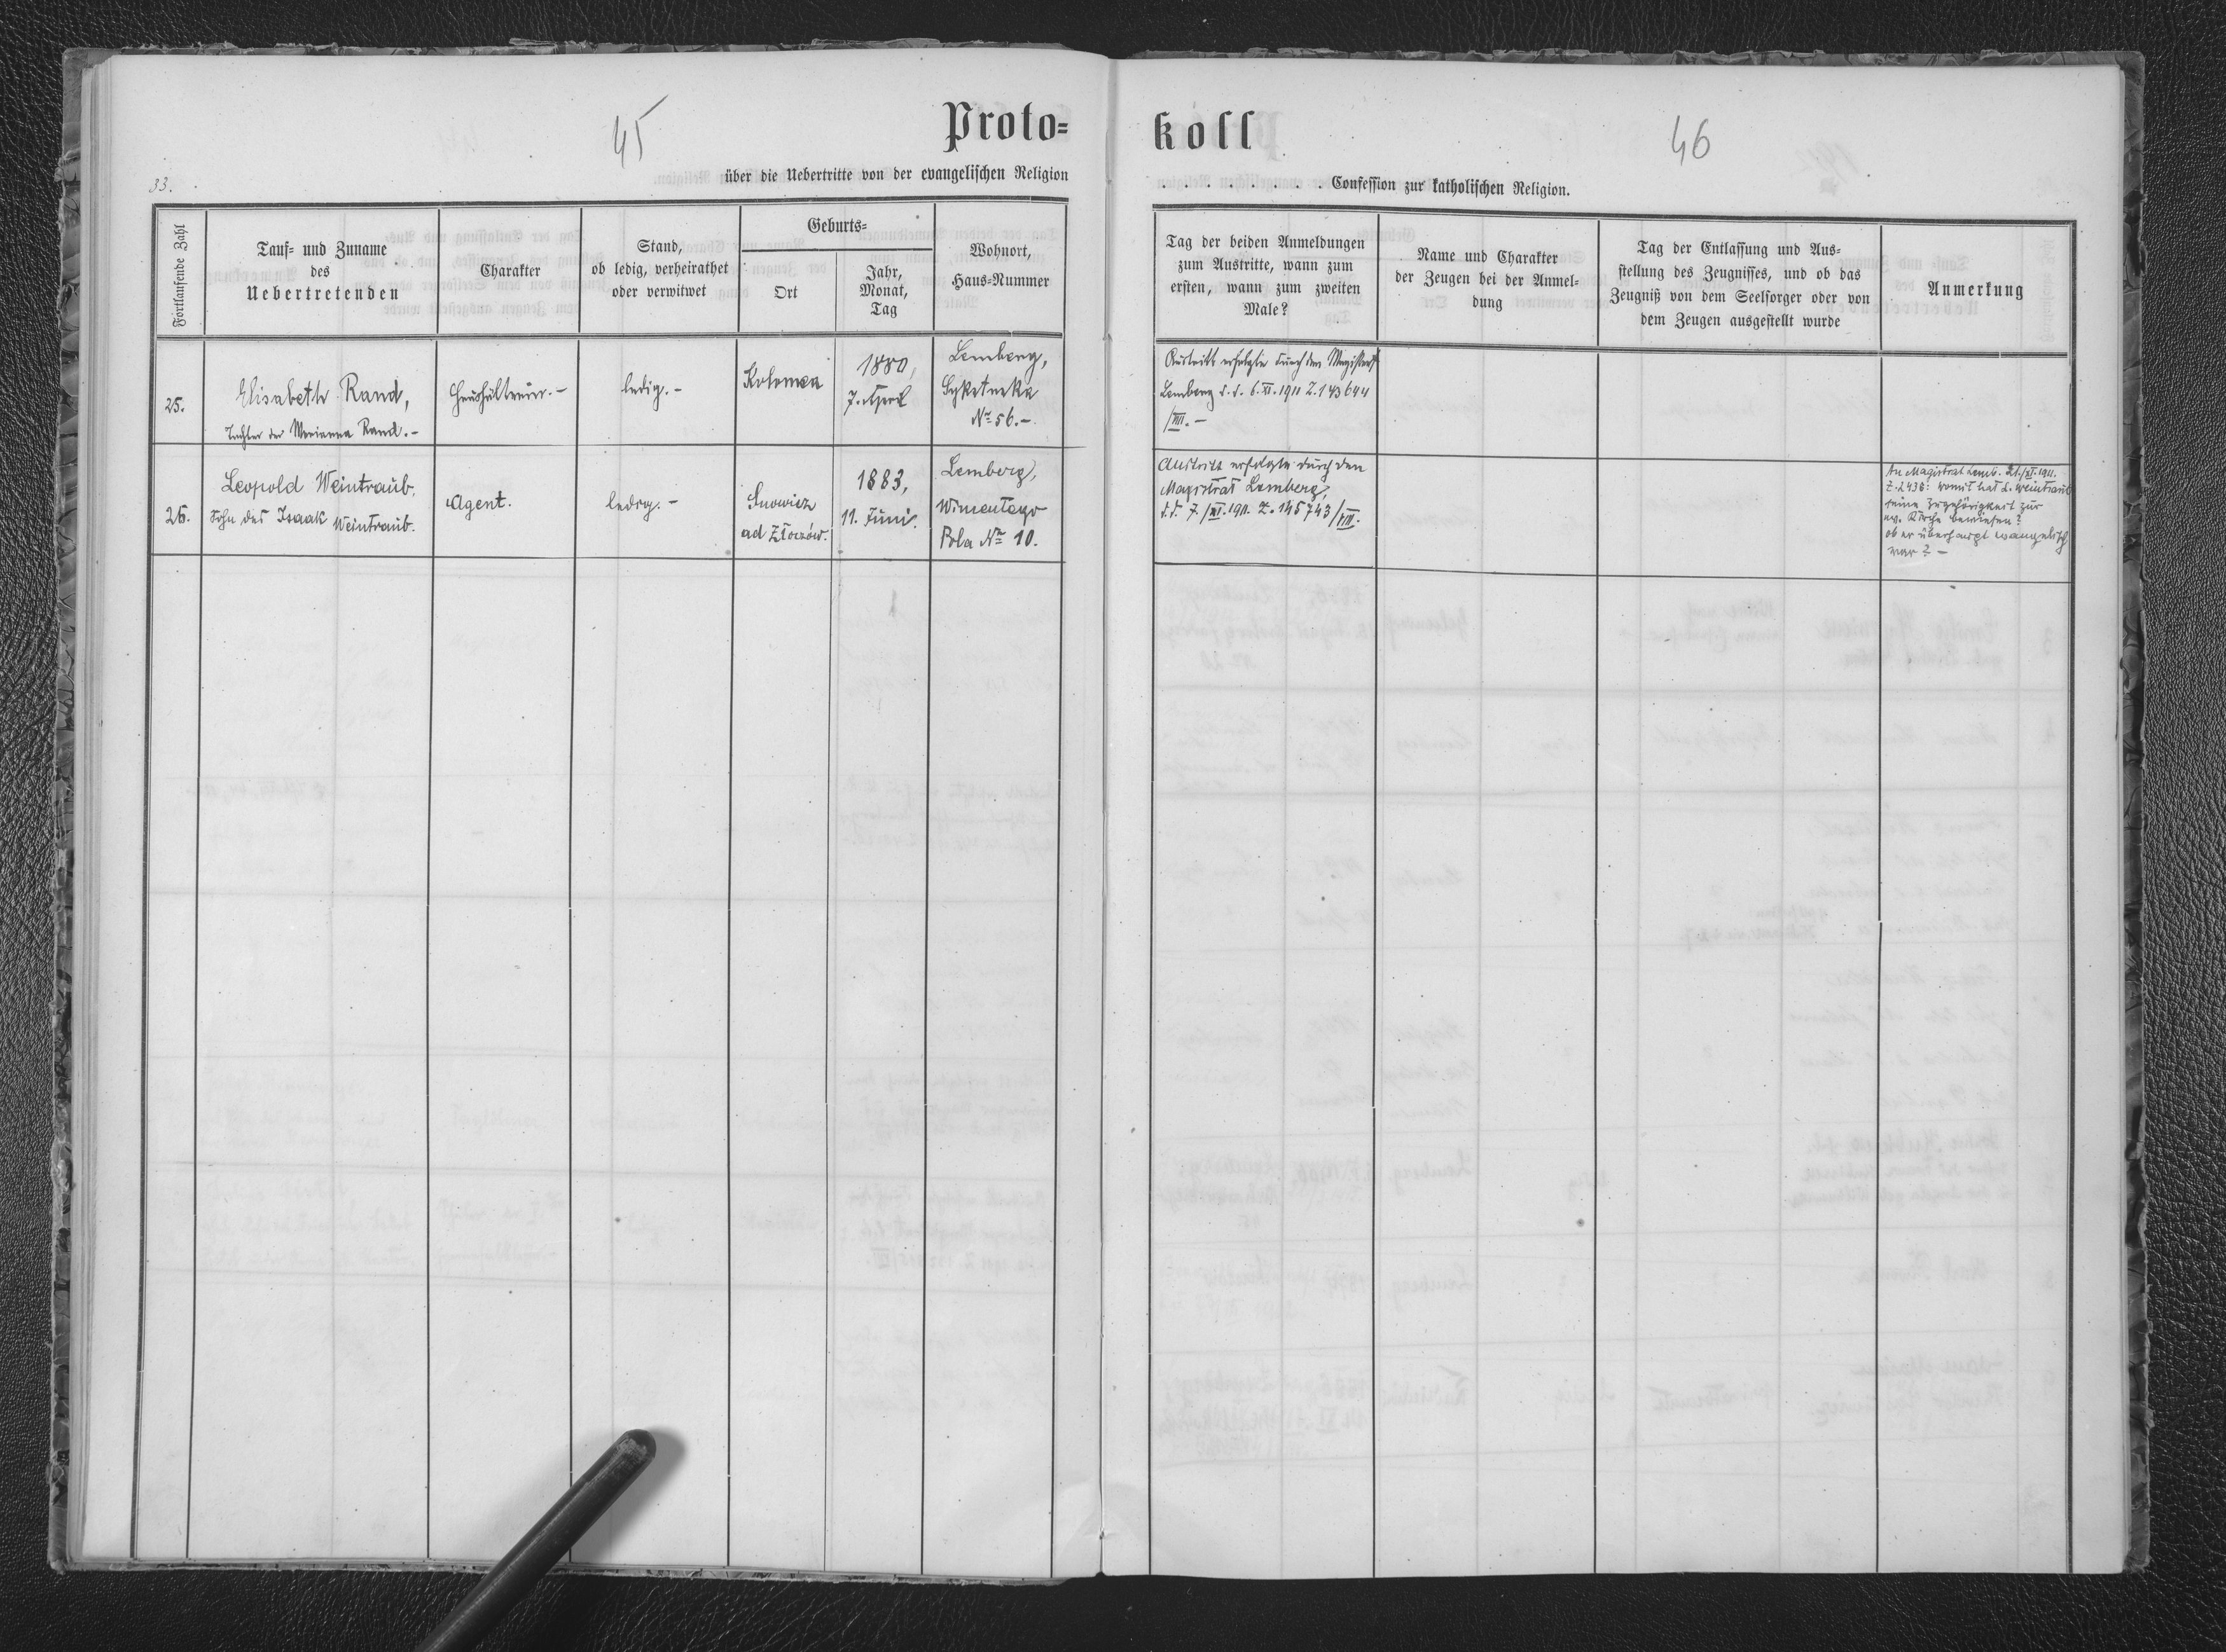 45
Proto=
koll
46
33.
über die Uebertritte von der evangelischen Religion
. . . . . . . . . Confession zur katholischen Religion.
Fortlaufende Zahl
Tauf= und Zuname
des
Uebertretenden
Charakter
Stand,
ob ledig, verheirathet
oder verwitwet
Geburts=
Ort
Jahr,
Monat,
Tag
Wohnort,
Haus=Nummer
Tag der beiden Anmeldungen
zum Austritte, wann zum
ersten, wann zum zweiten
Male?
Name und Charakter
der Zeugen bei der Anmel=
dung
Tag der Entlassung und Aus=
stellung des Zeugnisses, und ob das
Zeugniß von dem Seelsorger oder von
dem Zeugen ausgestellt wurde
Anmerkung
25.
Elisabeth Rand,
Tochter der Marianna Rand.-
ledig.-
Kolomea
1880,
7. April
Lemberg,
Sykstuska
No 56.-
Austritt erfolgte durch den Magistrat
Lemberg d. d. 6. XI. 1911 Z. 143644
/VIII.-
26.
Leopold Weintraub.
Sohn des Isaak Weintraub.
Agent.
ledig.-
Snowicz
ad Złoczów.
1883,
11. Juni.
Lemberg,
Pola No 10.
Austritt erfolgte durch den
Magistrat Lemberg,
d. d. 7./XI. 1911. Z. 145743/VIII.
An Magistrat Lemb. 21./XI. 1911.
Z. 2436: womit hat L. Weintraub
seine Zugehörigkeit zur
ev. Kirche bewiesen?
ob er überhaupt evangelisch
war? -